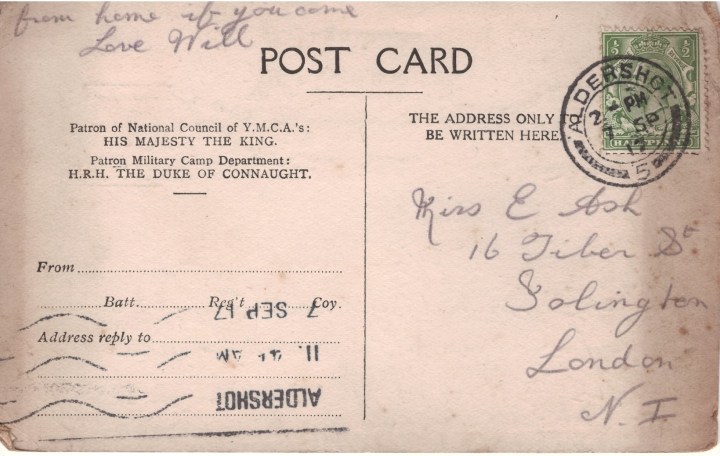 from home if you come
Love Will
POST CARD
Patron of National Council of Y.M.C.A.'s:
HIS MAJESTY THE KING.
Patron Military Camp Department:
H.R.H. THE DUKE OF CONNAUGHT.
THE ADDRESS ONLY
BE WRITTEN HERE.
ALDERSHOT
PM
7 SP
17
5
Miss E Ash
16 Tiber St
Islington
London
N. I
From
Batt. Reg't Coy.
7 SEP 17
Address reply to
11. AM
ALDERSHOT